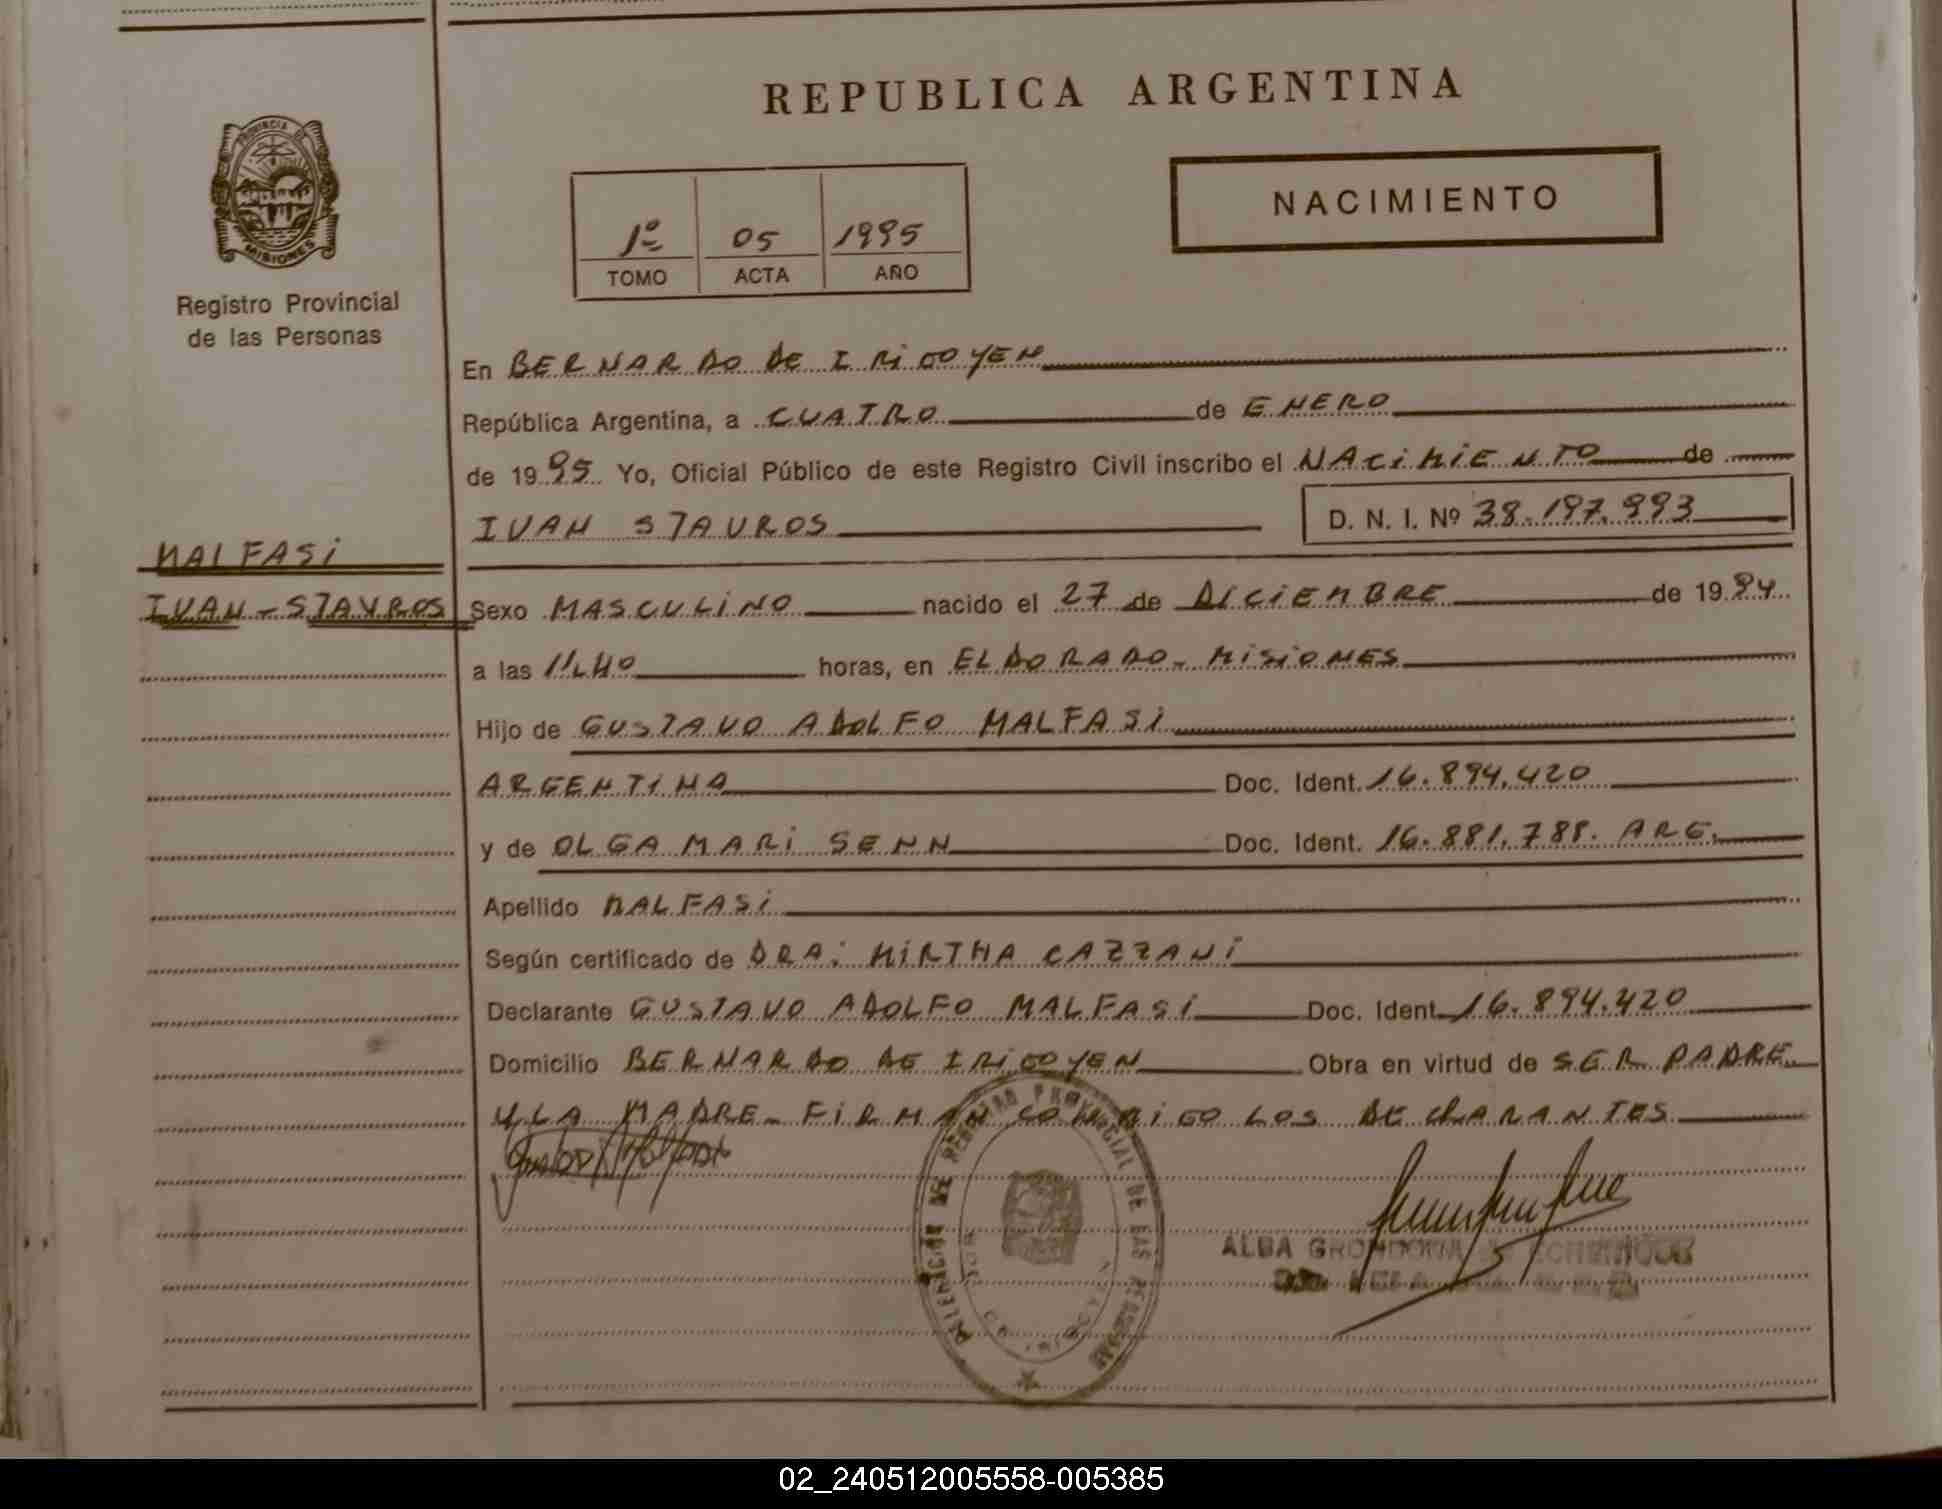 REPUBLICA ARGENTINA
PROVINCIA DE
MISIONES
Registro Provincial
de las Personas
NACIMIENTO
1º 05 1995
TOMO ACTA AÑO
En BERNARDO DE IRIGOYEN
República Argentina, a CUATRO de ENERO
de 1995 Yo, Oficial Público de este Registro Civil inscribo el NACIMIENTO de
IVAN STAVROS D. N. I. Nº 38.197.993
MALFASI
IVAN - STAVROS
Sexo MASCULINO nacido el 27 de DICIEMBRE de 1994
a las 11,40 horas, en ELDORADO - MISIONES
Hijo de GUSTAVO ADOLFO MALFASI
ARGENTINA Doc. Ident. 16.894.420
y de OLGA MARI SENN Doc. Ident. 16.881.788. ARG.
Apellido MALFASI
Según certificado de DRA: MIRTHA CAZZANI
Declarante GUSTAVO ADOLFO MALFASI Doc. Ident. 16.894.420
Domicilio BERNARDO DE IRIGOYEN Obra en virtud de SER PADRE
Y LA MADRE - FIRMAN CONMIGO LOS DECLARANTES
PROVINCIAL DE LAS
ALBA GRONDONA
02_240512005558-005385